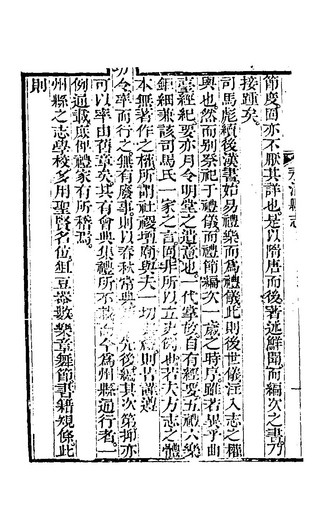 節度固亦不厭其詳也是以隋唐而後著述鮮聞而編次之書乃
接踵矣
司馬彪續後漢書始易禮樂而為禮儀此則後世儀注入志之權
輿也然而別祭祀于禮儀而禮節編次一歲之時序雖若異乎曲
臺經紀要亦月令明堂之遺意也一代掌故自有經要五禮六樂
鉅細兼該司馬氏一家之言固非所以立史例也若夫方志之體
本無著作之權所謂社稷壇廟與夫一切 則皆謹遵
功令率而行之無有廢事則以春秋常典 先後編其次第抑亦
可以率由舊章矣其有會典集禮所不載 今為州縣通行者一
例通載庶使禮家有所稽焉
州縣之志學校多用聖賢名位俎豆器數樂章舞節書籍規條此
則
永清縣志